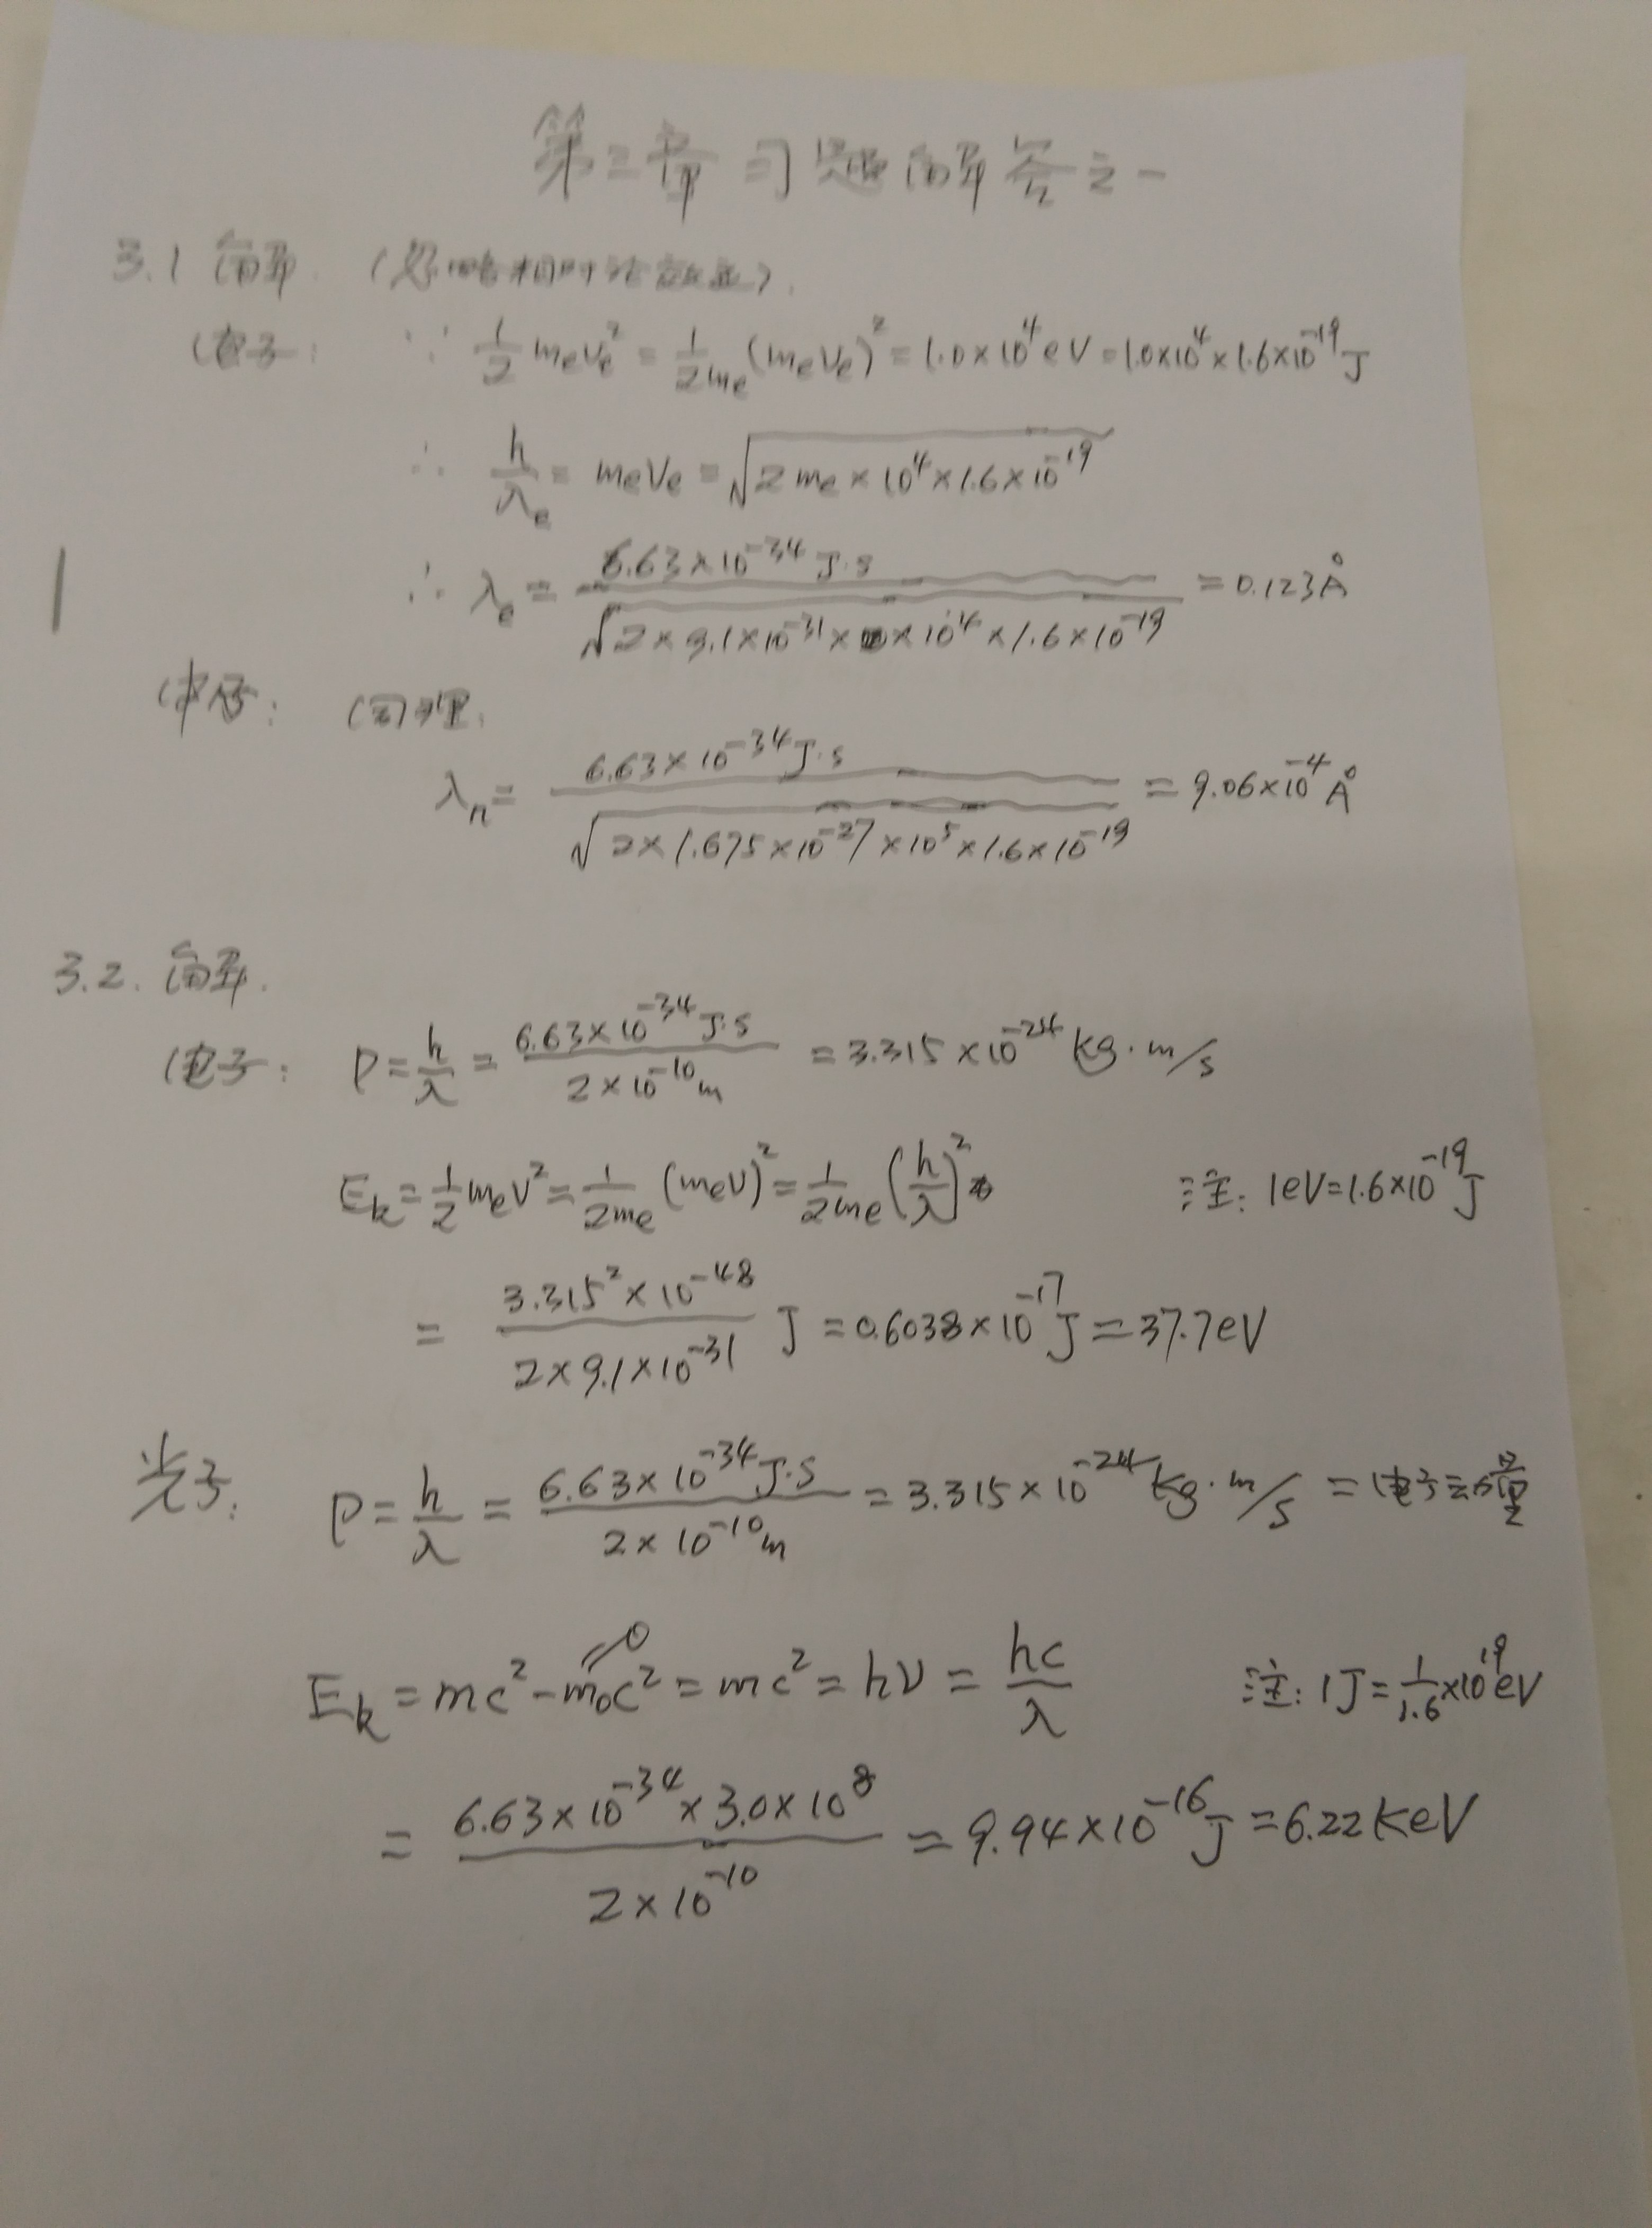 第三章习题解答之一
3.1 解 (忽略相对论效应).
电子: ∵ 1/2 mₑvₑ² = 1/2mₑ (mₑvₑ)² = 1.0×10⁴eV = 1.0×10⁴×1.6×10⁻¹⁹J
∴ h/λₑ = mₑvₑ = √(2mₑ×10⁴×1.6×10⁻¹⁹)
∴ λₑ = 6.63×10⁻³⁴J·s / √(2×9.1×10⁻³¹××10⁴×1.6×10⁻¹⁹) = 0.123Å
中子: 同理:
λₙ = 6.63×10⁻³⁴J·s / √(2×1.675×10⁻²⁷×10⁵×1.6×10⁻¹⁹) = 9.06×10⁻⁴Å
3.2. 解.
电子: P = h/λ = 6.63×10⁻³⁴J·s / 2×10⁻¹⁰m = 3.315×10⁻²⁴kg·m/s
Eₖ = 1/2 mₑv² = 1/2mₑ (mₑv)² = 1/2mₑ (h/λ)² 注: 1eV=1.6×10⁻¹⁹J
= 3.315²×10⁻⁴⁸ / 2×9.1×10⁻³¹ J = 0.6038×10⁻¹⁷J = 37.7eV
光子: P = h/λ = 6.63×10⁻³⁴J·s / 2×10⁻¹⁰m = 3.315×10⁻²⁴kg·m/s = 电子动量
Eₖ = mc² - m₀c² 0 = mc² = hν = hc/λ 注: 1J = 1/1.6 ×10¹⁹eV
= 6.63×10⁻³⁴×3.0×10⁸ / 2×10⁻¹⁰ = 9.94×10⁻¹⁶J = 6.22keV